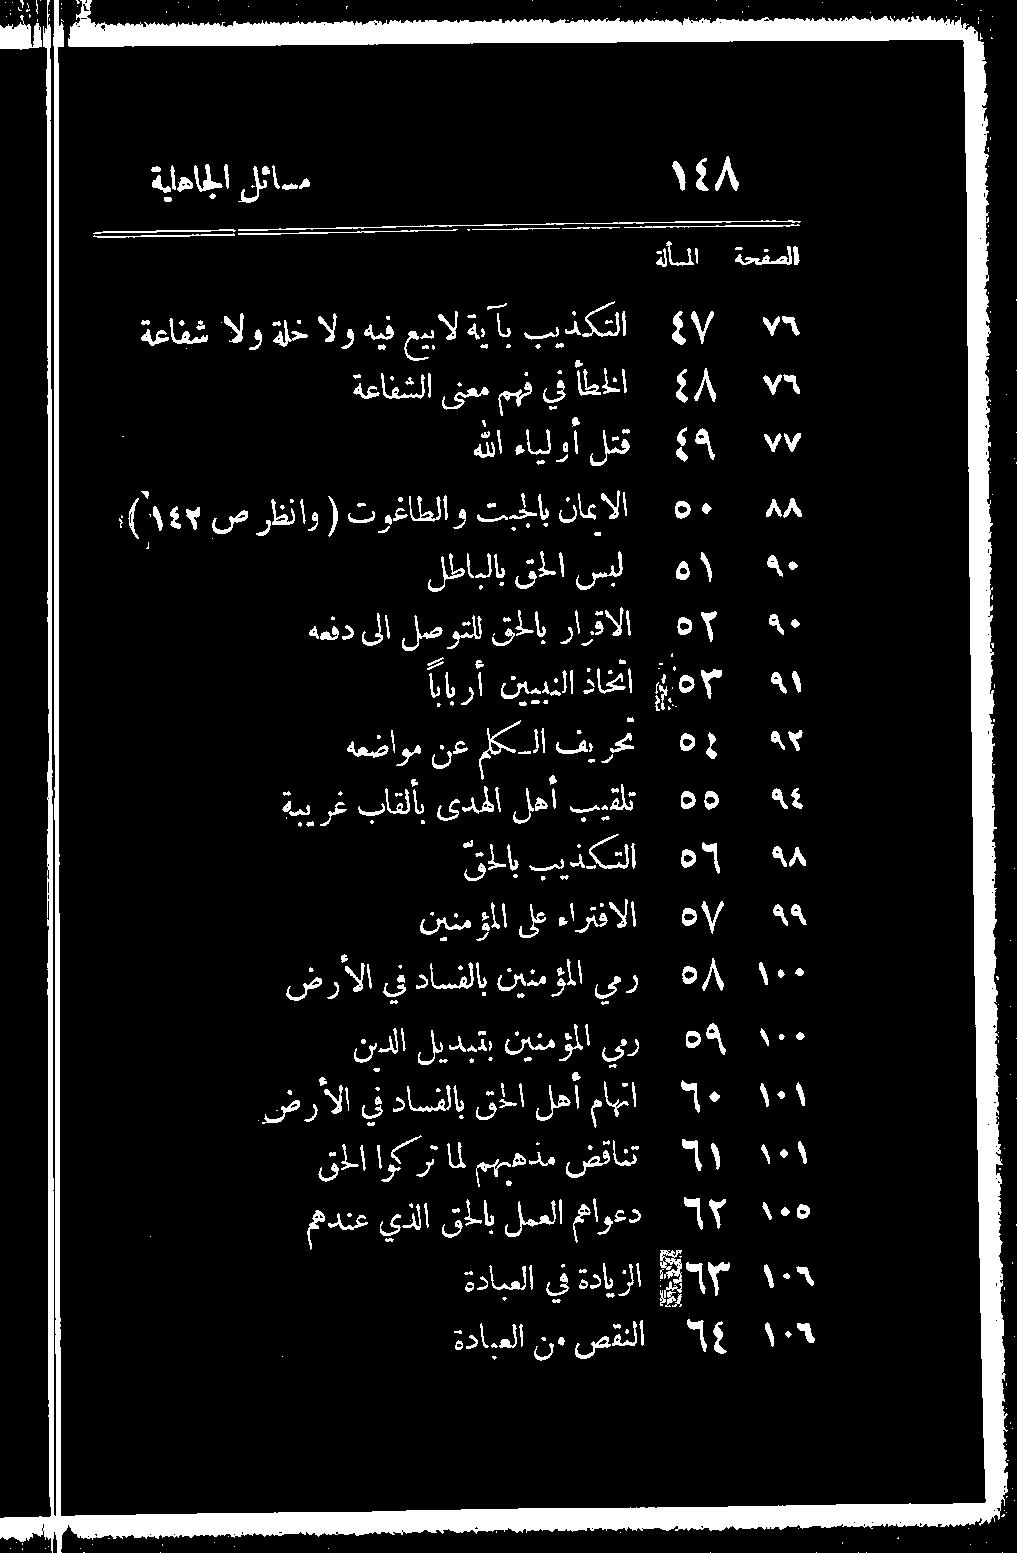 ١٤٨ مسائل الجاهلية
الصفحة المسألة
٧٦ ٤٧ التكذيب بآية لابيع فيه ولا خلة ولا شفاعة
٧٦ ٤٨ الخطأ في فهم معنى الشفاعة
٧٧ ٤٩ قتل أولياء الله
٨٨ ٥٠ الايمان بالجبت والطاغوت ( وانظر ص ١٤٢ )
٩٠ ٥١ لبس الحق بالباطل
٩٠ ٥٢ الاقرار بالحق للتوصل الى دفعه
٩١ ٥٣ اتخاذ النبيين أرباباً
٩٢ ٥٤ تحريف الكلم عن مواضعه
٩٤ ٥٥ تلقيب أهل الهدى بألقاب غريبة
٩٨ ٥٦ التكذيب بالحقّ
٩٩ ٥٧ الافتراء على المؤمنين
١٠٠ ٥٨ رمي المؤمنين بالفساد في الأرض
١٠٠ ٥٩ رمي المؤمنين بتبديل الدين
١٠١ ٦٠ اتهام أهل الحق بالفساد في الأرض
١٠١ ٦١ تناقض مذهبهم لما تركوا الحق
١٠٥ ٦٢ دعواهم العمل بالحق الذي عندهم
١٠٦ ٦٣ الزيادة في العبادة
١٠٦ ٦٤ النقص من العبادة